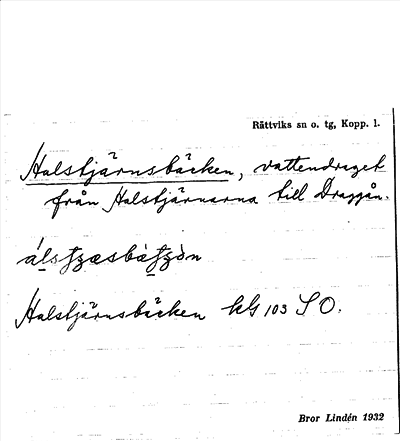 Rättviks sn o. tg, Kopp. l.
Halstjärnsbäcken, vattendraget
från Halstjärnarna till Draggån.
Halstjärnsbäcken kG 103 SO.
Bror Lindén 1932